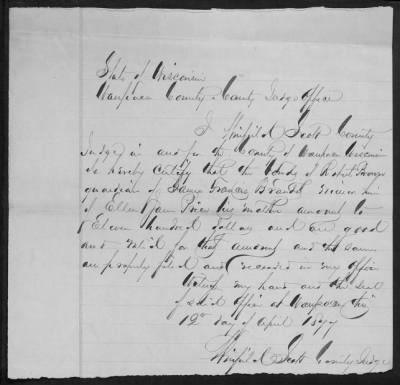 State of Wisconsin
Waupaca County County Judge Office
I Winfield Scott County
Judge in and for the County of Waupaca Wisconsin
do hereby certify that the of Robert
guardian of James Francis
of Ellen Jane Price his mother amount to
Eleven hundred dollars and are good
and valid for that amount and the same
are properly filed and recorded in my office
Witness my hand and the seal
of said office at Waupaca this
12th day of April
Winfield Scott County Judge